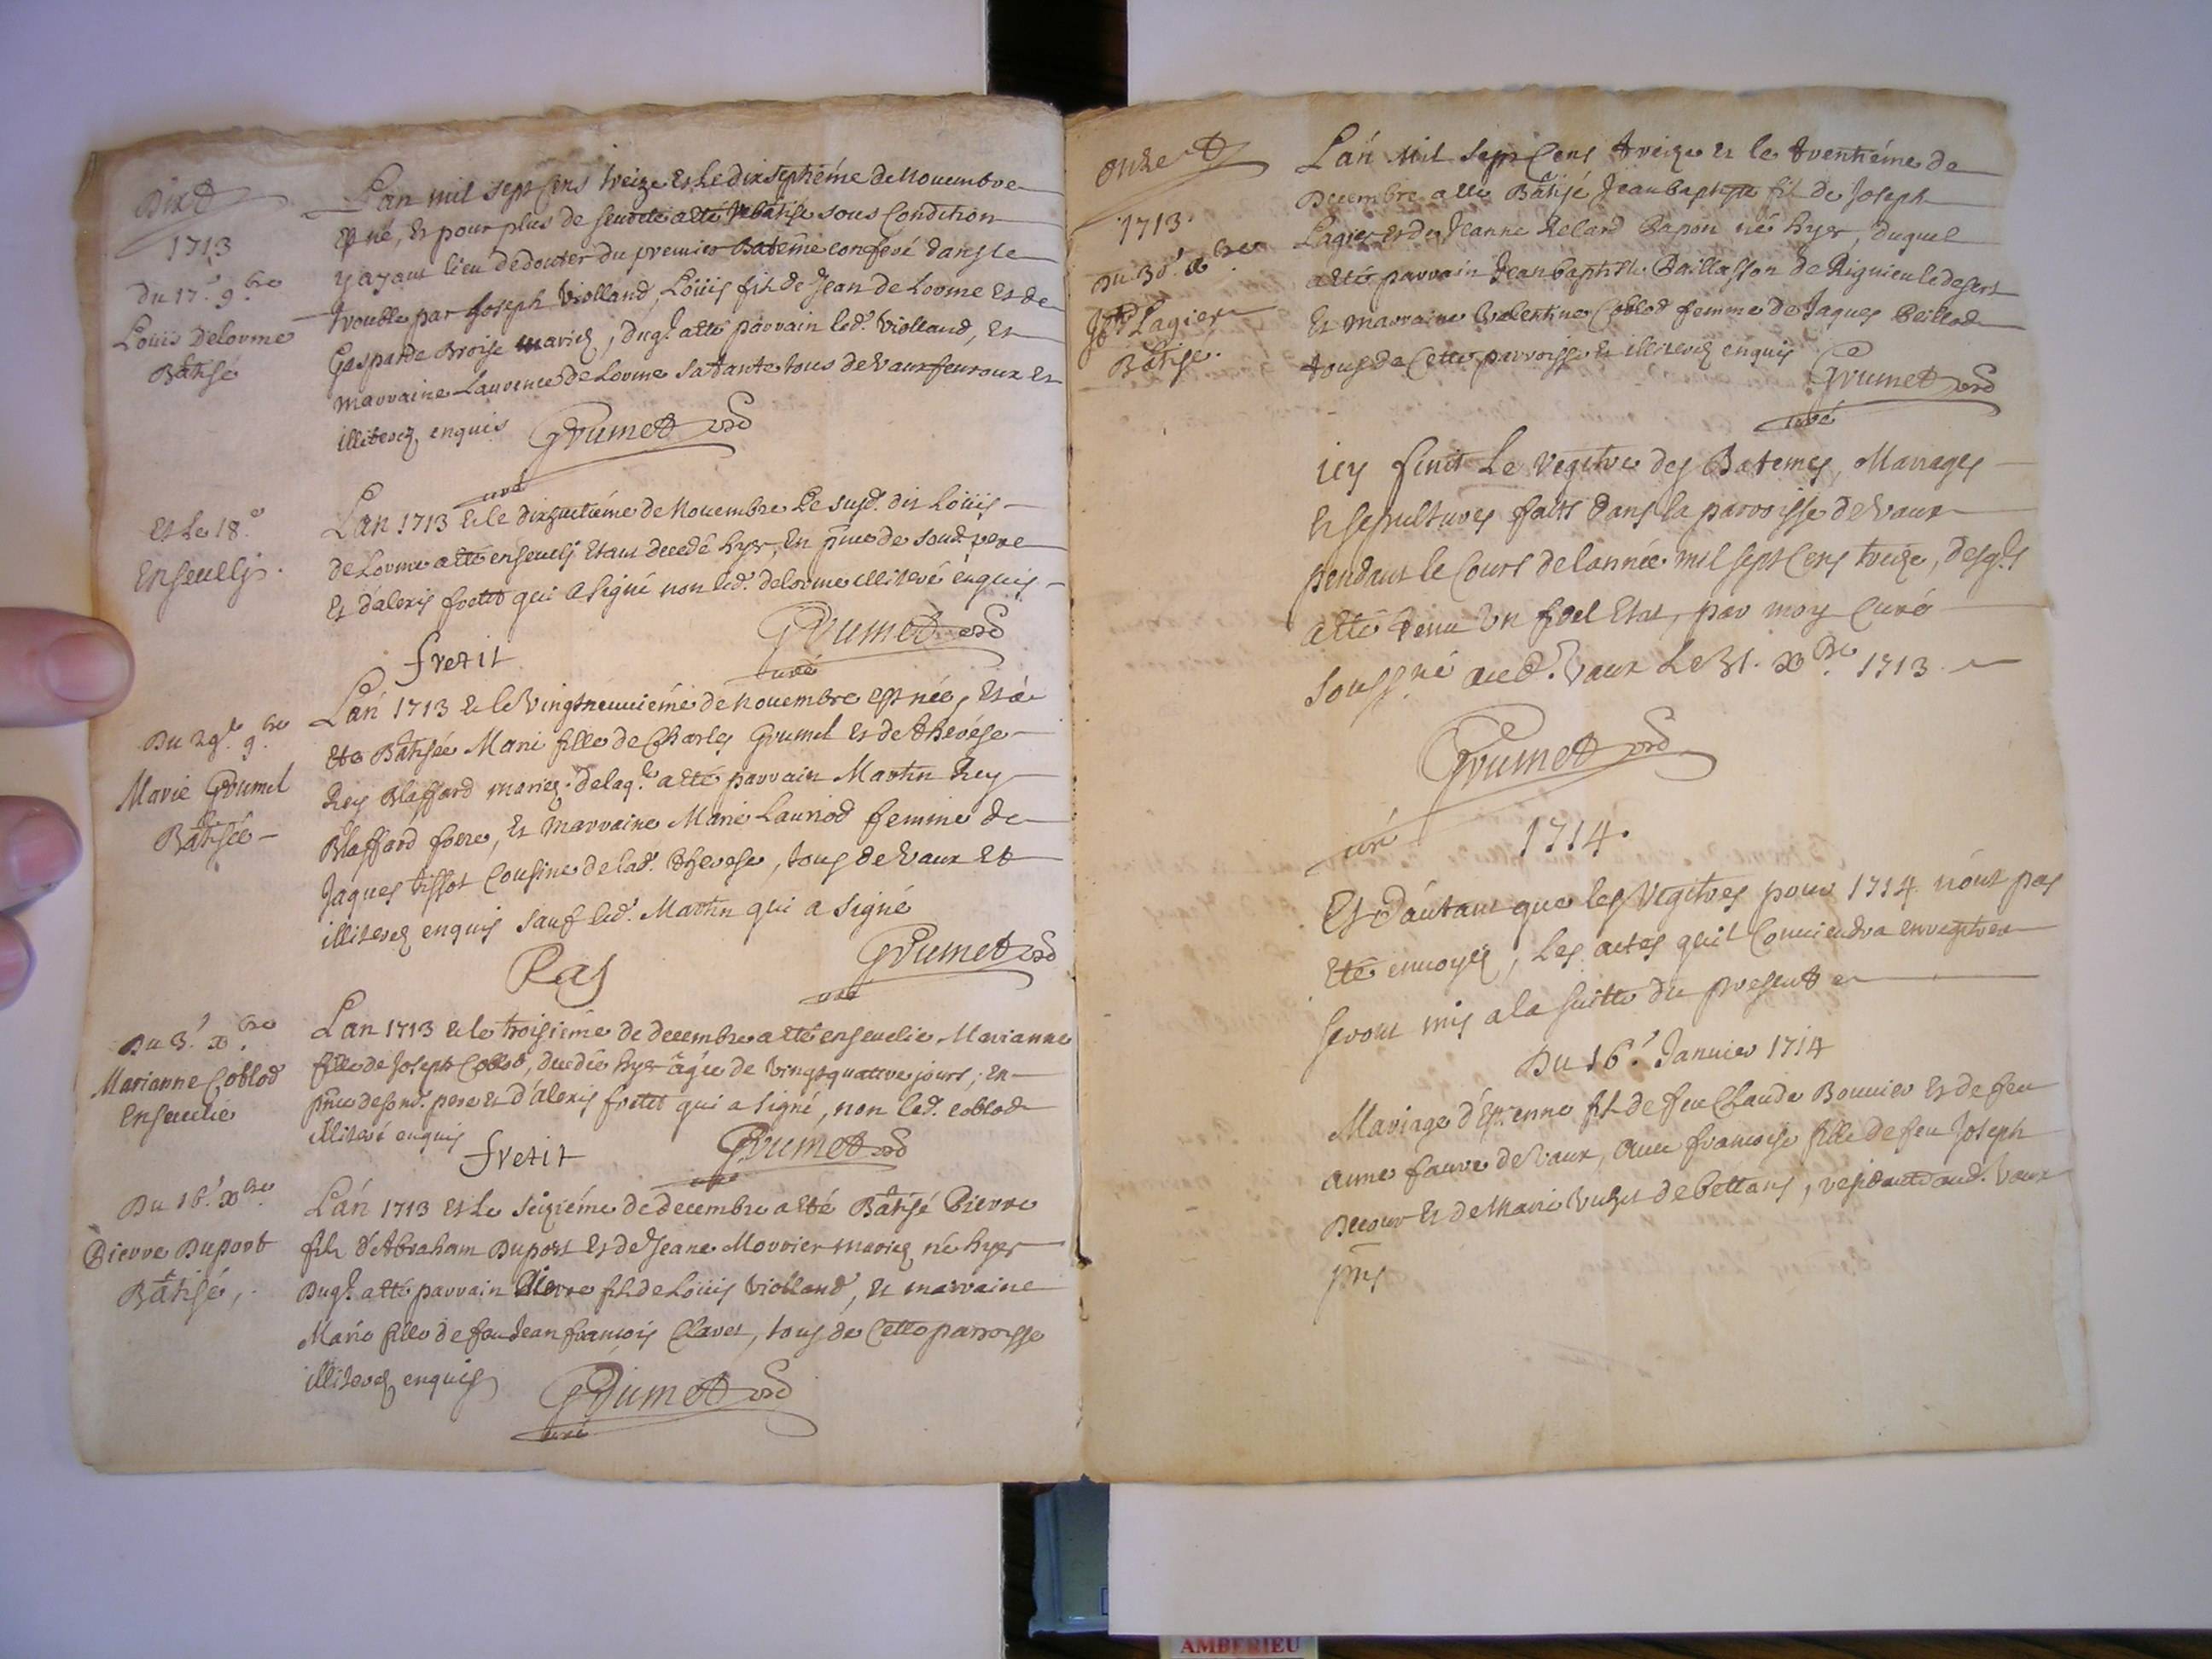 Dix
1713
Du 17.e 9.bre
Louis Delorme
Bâtisé
L'an mil sept Cens treize et Le dix septiéme de Nouembre
Est né, et pour plus de seureté a eté rebâtisé sous Condition
y ayant lieu de douter du premier Batéme conferé dans le
trouble par Joseph Violland, Loüis fils de Jean de Lorme et de
Gasparde Broise mariez, duq.l a eté parrain led.t Violland, et
marraine Laurence de Lorme sa tante tous de Vauxfeuroux et
illiterez enquis Grumet
curé
et Le 18.e
Enseuelis.
L'an 1713 et le dixhuitiéme de Nouembre Le susd.t dit Loüis
de Lorme a eté enseueli etant decedé hyer, En p̄nce de sond. pere
et d'alexis fretit qui a signé non led.t delorme illiteré enquis
fretit Grumet
curé
Du 29.e 9.bre
Marie Grumel
Batisée
L'an 1713 et le Vingtneuuiéme de Nouembre est née, et a
eté Bâtisée Marie fille de Charles Grumel et de therése
Rey Blaffard mariez. delaq.le a eté parrain Martin Rey
Blaffard frere, et marraine Marie Lauriod femme de
Jaques tissot Cousine de lad.e therese, tous de Vaux et
illiterez enquis sauf led.t Martin qui a signé
Ras Grumet
curé
Du 3.e xbre
Marianne Coblod
Enseuelie
L'an 1713 et le troisiéme de decembre a eté enseuelie Marianne
fille de Joseph Coblod, decedée hyer âgée de Vingtquattre jours, en
p̄nce de sond. pere et d'alexis fretit qui a signé, non led.t coblod
illiteré enquis fretit Grumet
curé
Du 16.e xbre
Pierre Duport
Bâtisé,
L'an 1713 et Le seiziéme de decembre a eté Bâtisé Pierre
fils d'Abraham Duport et de Jeane Morrier mariez né hyer
Duq.l a eté parrain Pierre fils de Loüis Violland, et marraine
Marie fille de feu Jean françois Clavet, tous de Cette parroisse
illiterez enquis Grumet
curé
Onze
1713.
Du 30.e xbre
J. B. Lagier
Bâtisé.
L'an mil sept Cens treize et le trentiéme de
Decembre a eté Bâtisé Jean baptiste fils de Joseph
Lagier et de Jeanne Relard Rapon né hyer, duquel
a eté parrain Jean baptiste Baillasson de Rignieuledesert
et marraine Valentine Coblod femme de Jaques Beillod
tous de Cette parroisse et illiterez enquis
Grumet
curé
icy finit Le regitre des Batemes, Mariages
et sepultures faits dans la parroisse de Vaux
pendant le Cours de l'année mil sept Cens treize, desq.ls
a eté tenu un fidel Etat, par moy Curé
soussigné aud.t Vaux Le 31. xbre 1713
Grumet
curé
1714.
Et d'autant que les regitres pour 1714 n'ont pas
eté enuoyez, Les actes qu'il Conuiendra enregitrer
seront mis a la suitte du present
Du 16.e Januier 1714
Mariage d'Etienne fils de feu Claude Bonnier et de feu
anne faure de Vaux, auec françoise fille de feu Joseph
Decour et de Marie Vuhet de bettans, residante aud. Vaux
pres
AMBERIEU